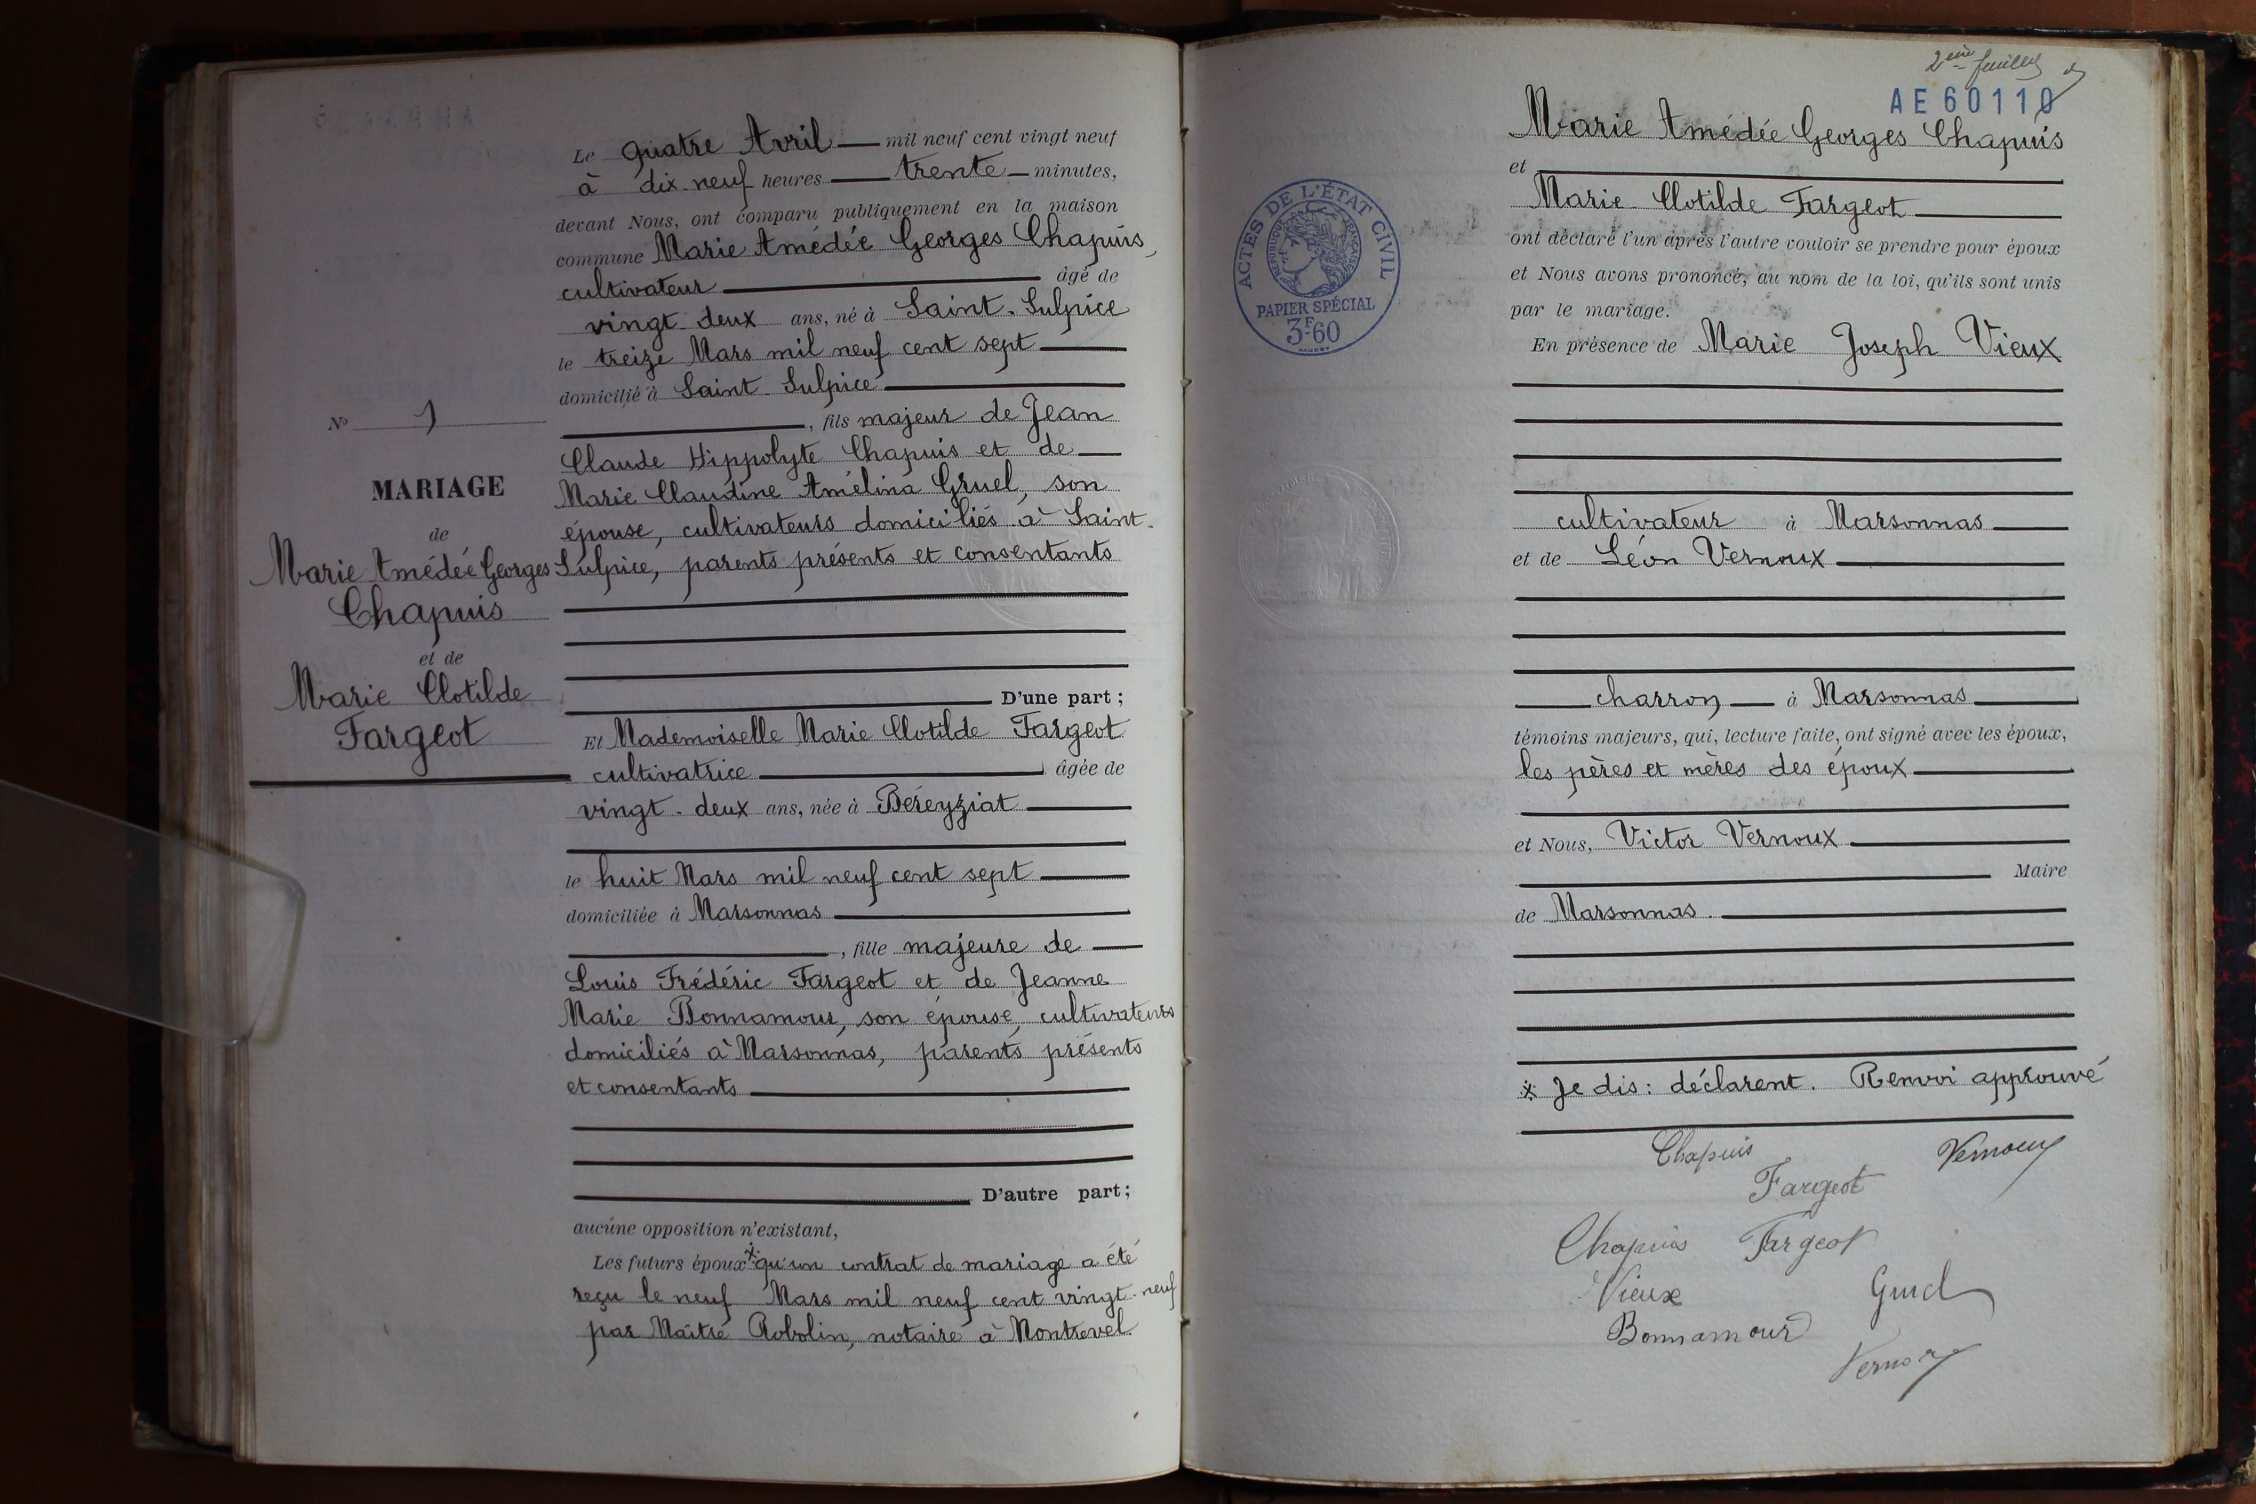 Le quatre Avril mil neuf cent vingt neuf
à dix-neuf heures trente minutes,
devant Nous, ont comparu publiquement en la maison
commune Marie Amédée Georges Chapuis,
cultivateur âgé de
vingt-deux ans, né à Saint-Sulpice
le treize Mars mil neuf cent sept
domicilié à Saint-Sulpice
, fils majeur de Jean
Claude Hippolyte Chapuis et de
Marie Claudine Amélina Gruel, son
épouse, cultivateurs domiciliés à Saint-
Sulpice, parents présents et consentants
D'une part ;
Et Mademoiselle Marie Clotilde Fargeot
cultivatrice âgée de
vingt-deux ans, née à Béreyziat
le huit Mars mil neuf cent sept
domiciliée à Marsonnas
, fille majeure de
Louis Frédéric Fargeot et de Jeanne
Marie Bonnamour, son épouse, cultivateurs
domiciliés à Marsonnas, parents présents
et consentants
D'autre part ;
aucune opposition n'existant,
Les futurs époux * qu'un contrat de mariage a été
reçu le neuf Mars mil neuf cent vingt-neuf
par Maître Robolin, notaire à Montrevel.
No
MARIAGE
de
Marie Amédée Georges
Chapuis
et de
Marie Clotilde
Fargeot
2ème feuillet
AE60110
Marie Amédée Georges Chapuis
et
Marie Clotilde Fargeot
ont déclaré l'un après l'autre vouloir se prendre pour époux
et Nous avons prononcé, au nom de la loi, qu'ils sont unis
par le mariage.
En présence de Marie Joseph Vieux
cultivateur à Marsonnas
et de Léon Vernoux
charron à Marsonnas
témoins majeurs, qui, lecture faite, ont signé avec les époux,
les pères et mères des époux
et Nous, Victor Vernoux
Maire
de Marsonnas.
* Je dis : déclarent. Renvoi approuvé
Chapuis
Vernoux
Fargeot
Chapuis Fargeot
Vieux
Gruel
Bonnamour
Vernoux
ACTES DE L'ÉTAT CIVIL
RÉPUBLIQUE FRANÇAISE
PAPIER SPÉCIAL
3F60